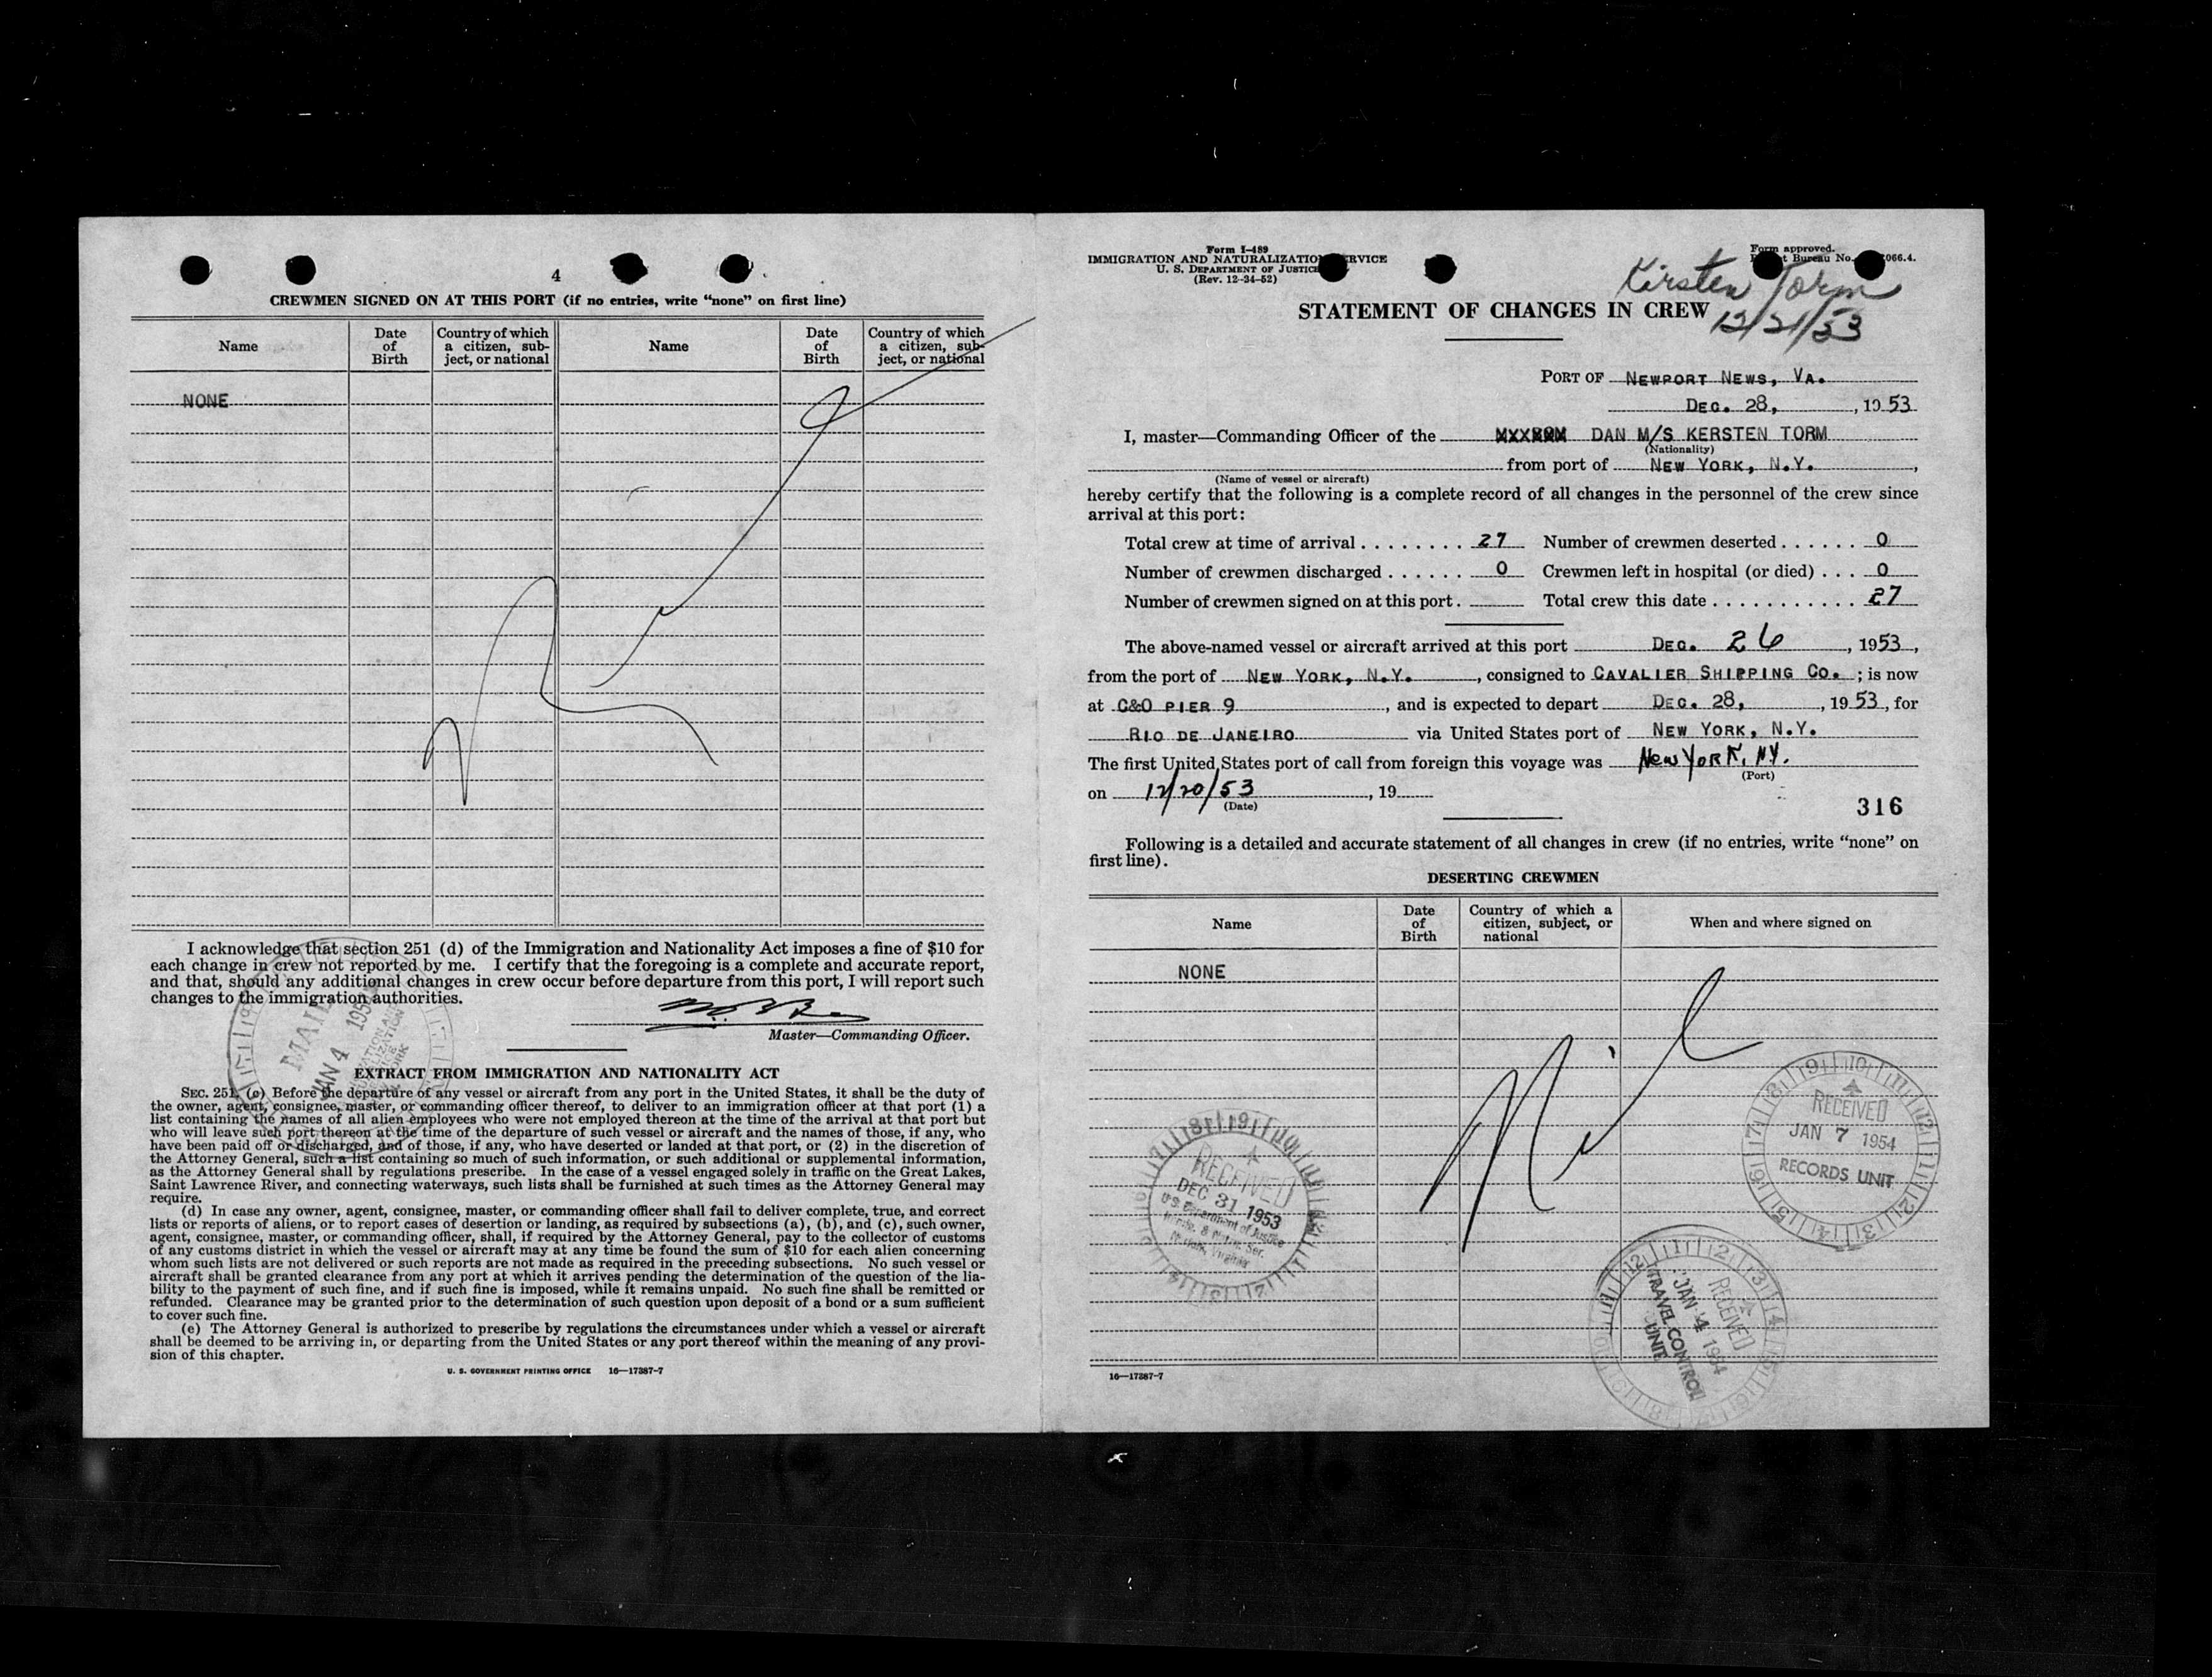 4
CREWMEN SIGNED ON AT THIS PORT (if no entries, write “none” on first line)
Name
Date of Birth
Country of which a citizen, sub-ject, or national
Name
Date of Birth
Country of which a citizen, sub-ject, or national
NONE
I acknowledge that section 251 (d) of the Immigration and Nationality Act imposes a fine of $10 for
each change in crew not reported by me. I certify that the foregoing is a complete and accurate report,
and that, should any additional changes in crew occur before departure from this port, I will report such
changes to the immigration authorities.
Master—Commanding Officer.
MAIL
JAN 4 195
EXTRACT FROM IMMIGRATION AND NATIONALITY ACT
SEC. 251. (c) Before the departure of any vessel or aircraft from any port in the United States, it shall be the duty of
the owner, agent, consignee, master, or commanding officer thereof, to deliver to an immigration officer at that port (1) a
list containing the names of all alien employees who were not employed thereon at the time of the arrival at that port but
who will leave such port thereon at the time of the departure of such vessel or aircraft and the names of those, if any, who
have been paid off or discharged, and of those, if any, who have deserted or landed at that port, or (2) in the discretion of
the Attorney General, such a list containing so much of such information, or such additional or supplemental information,
as the Attorney General shall by regulations prescribe. In the case of a vessel engaged solely in traffic on the Great Lakes,
Saint Lawrence River, and connecting waterways, such lists shall be furnished at such times as the Attorney General may
require.
(d) In case any owner, agent, consignee, master, or commanding officer shall fail to deliver complete, true, and correct
lists or reports of aliens, or to report cases of desertion or landing, as required by subsections (a), (b), and (c), such owner,
agent, consignee, master, or commanding officer, shall, if required by the Attorney General, pay to the collector of customs
of any customs district in which the vessel or aircraft may at any time be found the sum of $10 for each alien concerning
whom such lists are not delivered or such reports are not made as required in the preceding subsections. No such vessel or
aircraft shall be granted clearance from any port at which it arrives pending the determination of the question of the lia-
bility to the payment of such fine, and if such fine is imposed, while it remains unpaid. No such fine shall be remitted or
refunded. Clearance may be granted prior to the determination of such question upon deposit of a bond or a sum sufficient
to cover such fine.
(e) The Attorney General is authorized to prescribe by regulations the circumstances under which a vessel or aircraft
shall be deemed to be arriving in, or departing from the United States or any port thereof within the meaning of any provi-
sion of this chapter.
U. S. GOVERNMENT PRINTING OFFICE 16—17387-7
Form I-489
IMMIGRATION AND NATURALIZATION SERVICE
U. S. DEPARTMENT OF JUSTICE
(Rev. 12-24-52)
Form approved.
Bureau No. 066.4.
Kirsten Torm
12/21/53
STATEMENT OF CHANGES IN CREW
PORT OF NEWPORT NEWS, VA.
DEC. 28, , 1953
I, master—Commanding Officer of the DAN M/S KERSTEN TORM
(Nationality)
from port of NEW YORK, N.Y. ,
(Name of vessel or aircraft)
hereby certify that the following is a complete record of all changes in the personnel of the crew since
arrival at this port:
Total crew at time of arrival . . . . . . . . 27 Number of crewmen deserted . . . . . . 0
Number of crewmen discharged . . . . . . 0 Crewmen left in hospital (or died) . . . 0
Number of crewmen signed on at this port . Total crew this date . . . . . . . . . . . . 27
The above-named vessel or aircraft arrived at this port DEC. 26 , 1953,
from the port of NEW YORK, N.Y. , consigned to CAVALIER SHIPPING CO. ; is now
at C&O PIER 9 , and is expected to depart DEC. 28, , 1953, for
RIO DE JANEIRO via United States port of NEW YORK, N.Y.
The first United States port of call from foreign this voyage was New York, NY.
(Port)
on 12/20/53 , 19
(Date)
316
Following is a detailed and accurate statement of all changes in crew (if no entries, write “none” on
first line).
DESERTING CREWMEN
Name
Date of Birth
Country of which a citizen, subject, or national
When and where signed on
NONE
Nil
RECEIVED
DEC 31 1953
U.S. Department of Justice
RECEIVED
JAN 7 1954
RECORDS UNIT
RECEIVED
JAN 4 1954
TRAVEL CONTROL
UNIT
16—17387-7